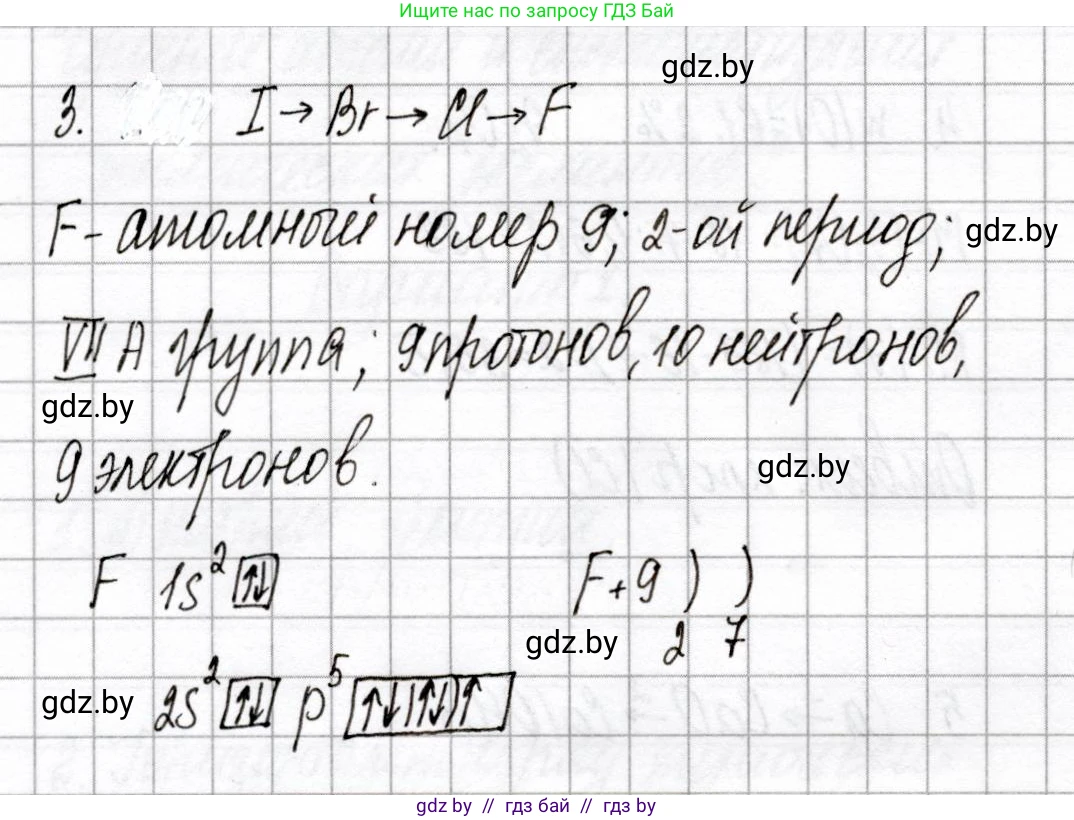 Ищите нас по запросу ГДЗ Бай
gdz.by
3. I → Br → Cl → F
F - атомный номер 9; 2-ой период;
gdz.by
VII A группа; 9 протонов, 10 нейтронов,
gdz.by
9 электронов.
gdz.by
F 1s² ↑↓ F +9 ) )
gdz.by 2 7
gdz.by 2s² ↑↓ p⁵ ↑↓ ↑↓ ↑
gdz by // гдз бай // гдз by